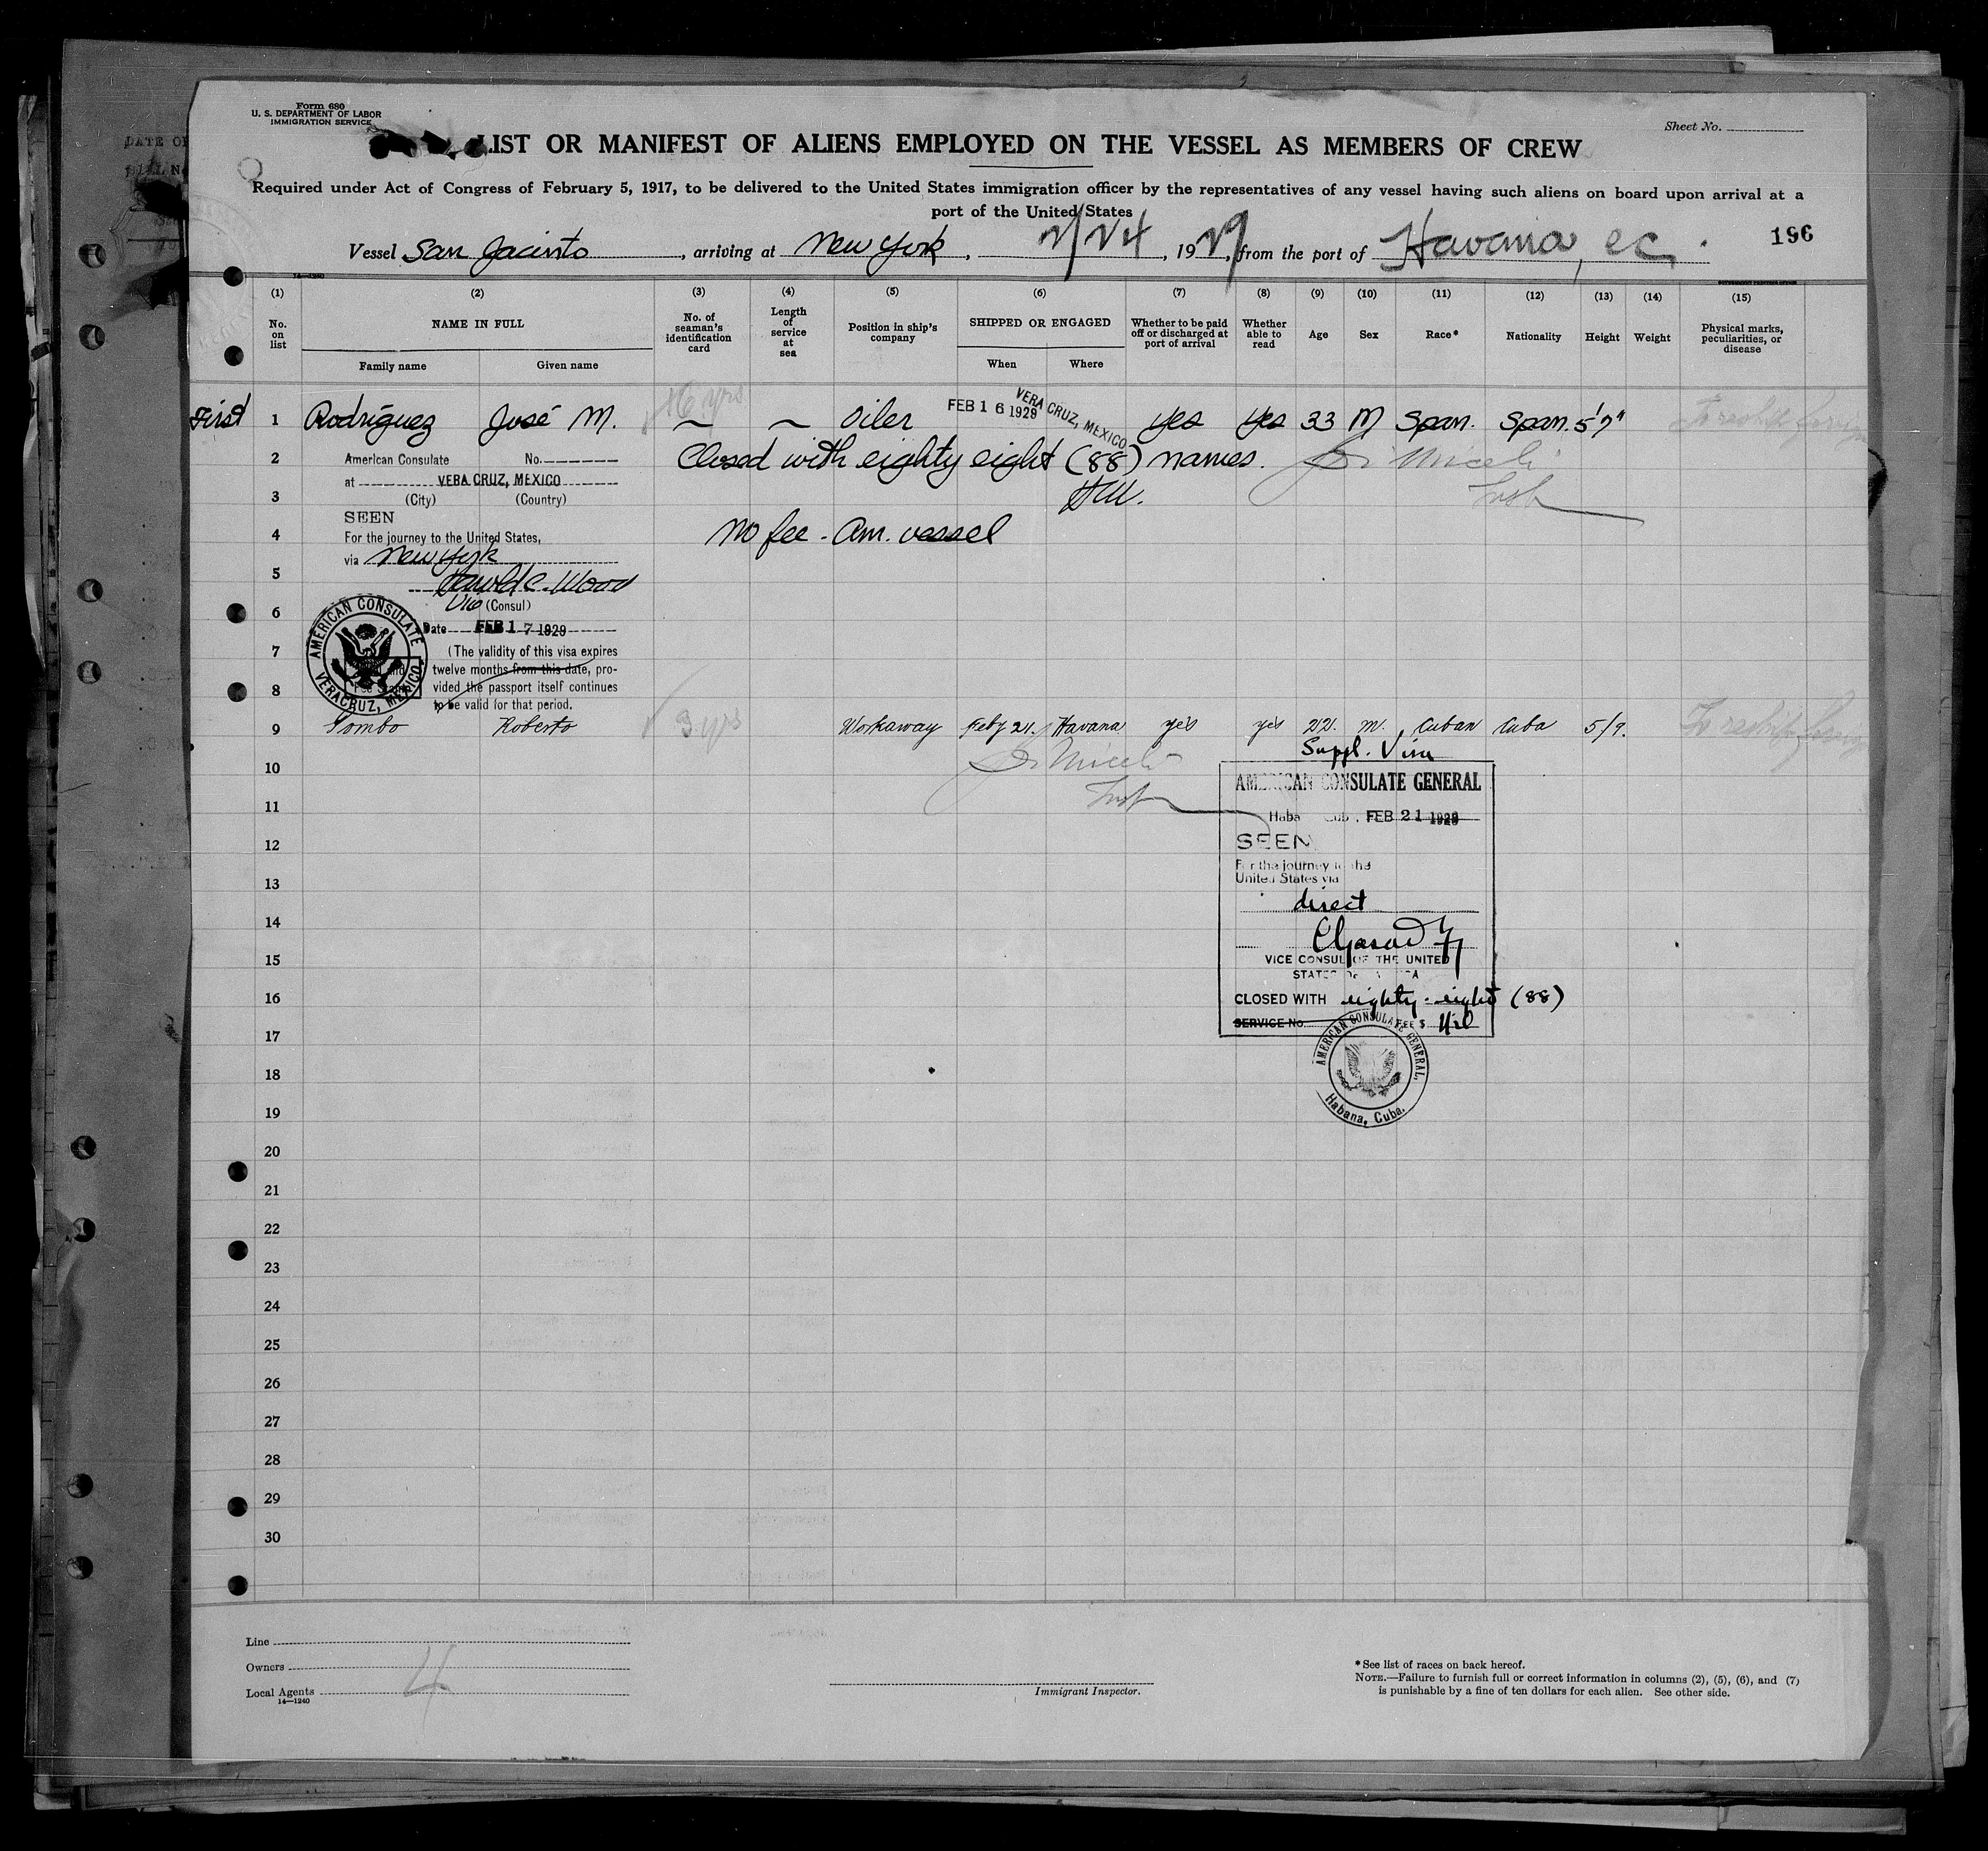 Form 680
U. S. DEPARTMENT OF LABOR
IMMIGRATION SERVICE
Sheet No.
LIST OR MANIFEST OF ALIENS EMPLOYED ON THE VESSEL AS MEMBERS OF CREW
Required under Act of Congress of February 5, 1917, to be delivered to the United States immigration officer by the representatives of any vessel having such aliens on board upon arrival at a
port of the United States
Vessel San Jacinto, arriving at New York, 2/24, 1929, from the port of Havana, ec. 196
14—1240
(1) (2) (3) (4) (5) (6) (7) (8) (9) (10) (11) (12) (13) (14) (15)
No. on list
NAME IN FULL
Family name Given name
No. of seaman's identification card
Length of service at sea
Position in ship's company
SHIPPED OR ENGAGED
When Where
Whether to be paid off or discharged at port of arrival
Whether able to read
Age
Sex
Race*
Nationality
Height
Weight
Physical marks, peculiarities, or disease
16 yrs
First 1 Rodríguez José M. ~ ~ Oiler FEB 16 1929 VERA CRUZ, MEXICO yes yes 33 M Span. Span. 5'7" To reship foreign
2 American Consulate No. Closed with eighty eight (88) names.
at VERA CRUZ, MEXICO
3 (City) (Country) HW.
SEEN
4 For the journey to the United States, No fee - Am. vessel
via New York
5 Harold C. Wood
6 Vice (Consul)
Date FEB 17 1929
7 (The validity of this visa expires
twelve months from this date, pro-
8 vided the passport itself continues
to be valid for that period.
AMERICAN CONSULATE
VERACRUZ, MEXICO
9 Gombo Roberto 3 yrs Workaway Feby 21. Havana yes yes 22. m. Cuban Cuba 5/9. To reship foreign
Suppl. Visa
10 AMERICAN CONSULATE GENERAL
11 Haba Cub FEB 21 1929
12 SEEN
13 For the journey to the
United States via
14 direct
15 VICE CONSUL OF THE UNITED
STATES OF AMERICA
16 CLOSED WITH eighty-eight (88)
17 SERVICE No. FEE $ Nil
AMERICAN CONSULATE GENERAL,
Habana, Cuba.
18
19
20
21
22
23
24
25
26
27
28
29
30
Line
Owners
Local Agents
14—1240
4
Immigrant Inspector.
*See list of races on back hereof.
NOTE.—Failure to furnish full or correct information in columns (2), (5), (6), and (7)
is punishable by a fine of ten dollars for each alien. See other side.